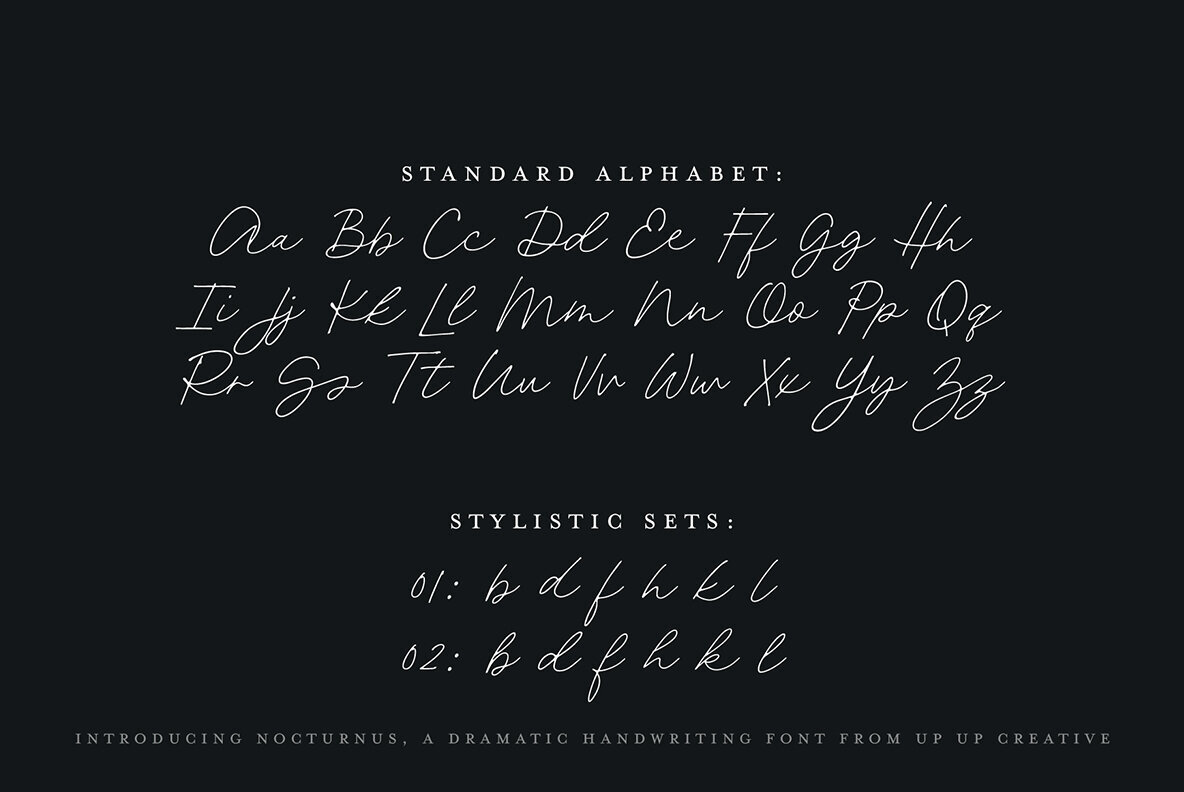 STANDARD ALPHABET:
Aa Bb Cc Dd Ee Ff Gg Hh
Ii Jj Kk Ll Mm Nn Oo Pp Qq
Rr Ss Tt Uu Vv Ww Xx Yy Zz
STYLISTIC SETS:
01: b d f h k l
02: b d f h k l
INTRODUCING NOCTURNUS, A DRAMATIC HANDWRITING FONT FROM UP UP CREATIVE